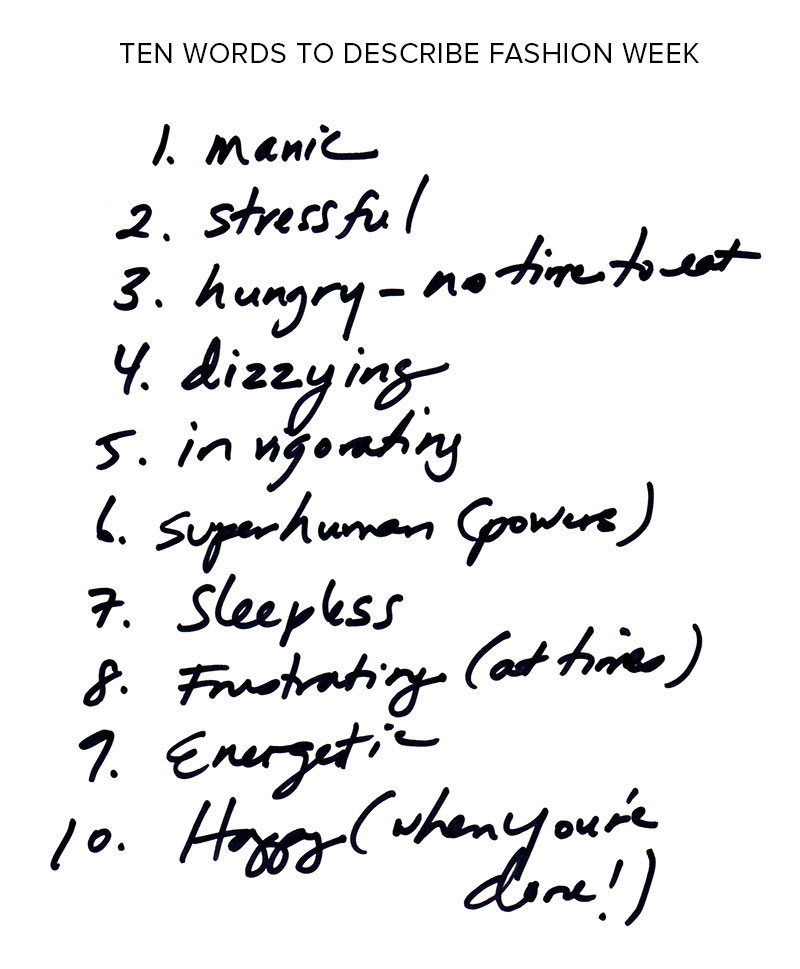 TEN WORDS TO DESCRIBE FASHION WEEK
1. manic
2. stressful
3. hungry - no time to eat
4. dizzying
5. invigorating
6. superhuman (powers)
7. Sleepless
8. Frustrating (at times)
9. Energetic
10. Happy (when you're
done!)